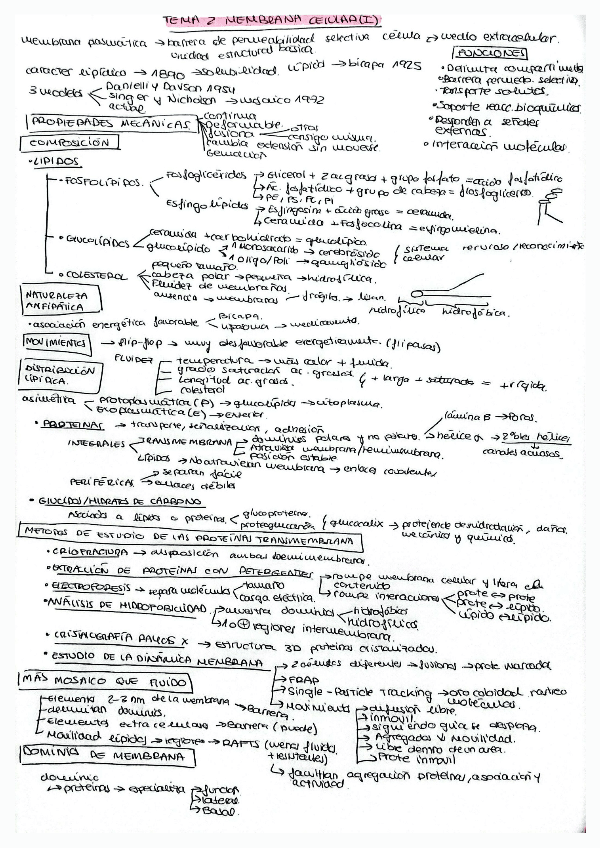 TEMA 2 MEMBRANA CELULAR (I)
Membrana plasmática → barrera de permeabilidad selectiva célula → medio extracelular.
unidad estructural básica
FUNCIONES
• Delimita compartimento
• Barrera permeab. selectiva
• Transporte solutos.
• Soporte reacc. bioquímicas.
• Responden a señales externas.
• Interacción moléculas.
carácter lipídico → 1890 → solubilidad. Lípido → bicapa 1925
3 modelos
Danielli y Davson 1954
Singer y Nicholson → mosaico 1972
actual.
PROPIEDADES MECÁNICAS
continua
deformable.
fusiona
otros
consigo misma.
cambia extensión sin moverse
Gemación
COMPOSICIÓN
• LÍPIDOS
• FOSFOLÍPIDOS.
Fosfoglicéridos
Glicerol + 2 ac graso + grupo fosfato = ácido fosfatídico
Ac. fosfatídico + grupo de cabeza = fosfoglicérido.
PE, PS, PC, PI
Esfingolípidos
Esfingosina + ácido graso = ceramida.
Ceramida + Fosfocolina = esfingomielina.
• GLUCOLÍPIDOS
ceramida + carbohidrato = glucolípido.
glucolípido
1 Monosacárido → cerebrósido
1 oligo/Poli → gangliósido
sistema nervioso/reconocimiento celular
• COLESTEROL
pequeño tamaño.
cabeza polar → pequeña → hidrofílica.
Fluidez de membranas.
ausencia → membranas → frágiles → lisan.
hidrofílica hidrofóbica.
NATURALEZA ANFIPÁTICA
• asociación energética favorable
BICAPA.
liposoma → medicamento.
MOVIMIENTOS → flip-flop → muy desfavorable energéticamente. (flipasas)
DISTRIBUCIÓN LIPÍDICA.
FLUIDEZ
temperatura → más calor + fluida.
grado saturación ac. grasos
longitud ac. grasos.
+ largo + saturado = + rígida.
colesterol
asimétrica
Protoplasmática (P) → glucolípido → citoplasma.
Exoplasmática (E) → exterior.
• PROTEÍNAS → transporte, señalización, adhesión
INTEGRALES
TRANSMEMBRANA
dominios polares y no polares. → hélice α →
lámina B → poros.
canales acuosos.
Atraviesa membrana/hemimembrana.
posición estable
LÍPIDOS → No atraviesan membrana → enlaces covalentes
PERIFÉRICAS
separan fácil
enlaces débiles
• GLÚCIDOS/HIDRATOS DE CARBONO
Asociados a lípidos o proteínas
glucoproteína.
proteoglucano
glucocalix → protejen de deshidratación, daños mecánico y químicos.
METODOS DE ESTUDIO DE LAS PROTEÍNAS TRANSMEMBRANA
• CRIOFRACTURA → disposición ambas hemimembranas.
• EXTRACCIÓN DE PROTEÍNAS CON DETERGENTES
rompe membrana celular y libera el contenido
rompe interacciones
prote ↔ prote
prote ↔ lípido.
lípido ↔ lípido.
• ELECTROFORESIS → separa moléculas
tamaño
carga eléctrica.
• ANÁLISIS DE HIDROFOBICIDAD
muestra dominios
hidrofóbicos
hidrofílicos.
⊕ regiones intermembrana.
• CRISTALOGRAFÍA RAYOS X → estructura 3D proteínas cristalizadas.
• ESTUDIO DE LA DINÁMICA MEMBRANA
2 células diferentes → fusiones → prote marcada
FRAP
Single-Particle Tracking → oro coloidal rastreo moléculas.
Movimiento
difusión libre.
inmovil.
siguiendo guía se desplaza.
Agregados ↓ MOVILIDAD.
Libre dentro de un area.
Prote inmovil
MÁS MOSAICO QUE FLUIDO
Elementos 2-3 nm de la membrana → Barrera.
delimitan dominios.
Elementos extracelulares → Barrera (puede)
Movilidad lípidos → regiones → RAFTS (menos fluidos + resistentes)
facilitan agregación proteínas, asociación y actividad.
DOMINIOS DE MEMBRANA
dominio
→ proteínas → especializa
función
lateral.
Basal.